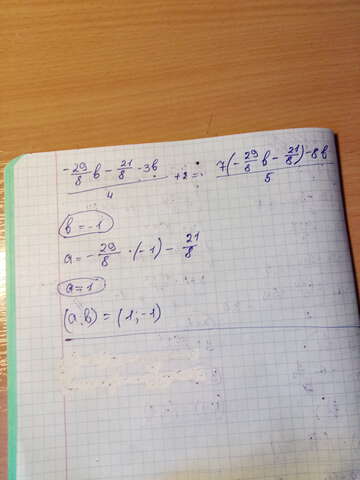 (-29/8 b - 21/8 - 3b)/4 + 2 = (7(-29/8 b - 21/8) - 8b)/5
b = -1
a = -29/8 · (-1) - 21/8
a = 1
(a,b) = (1;-1)